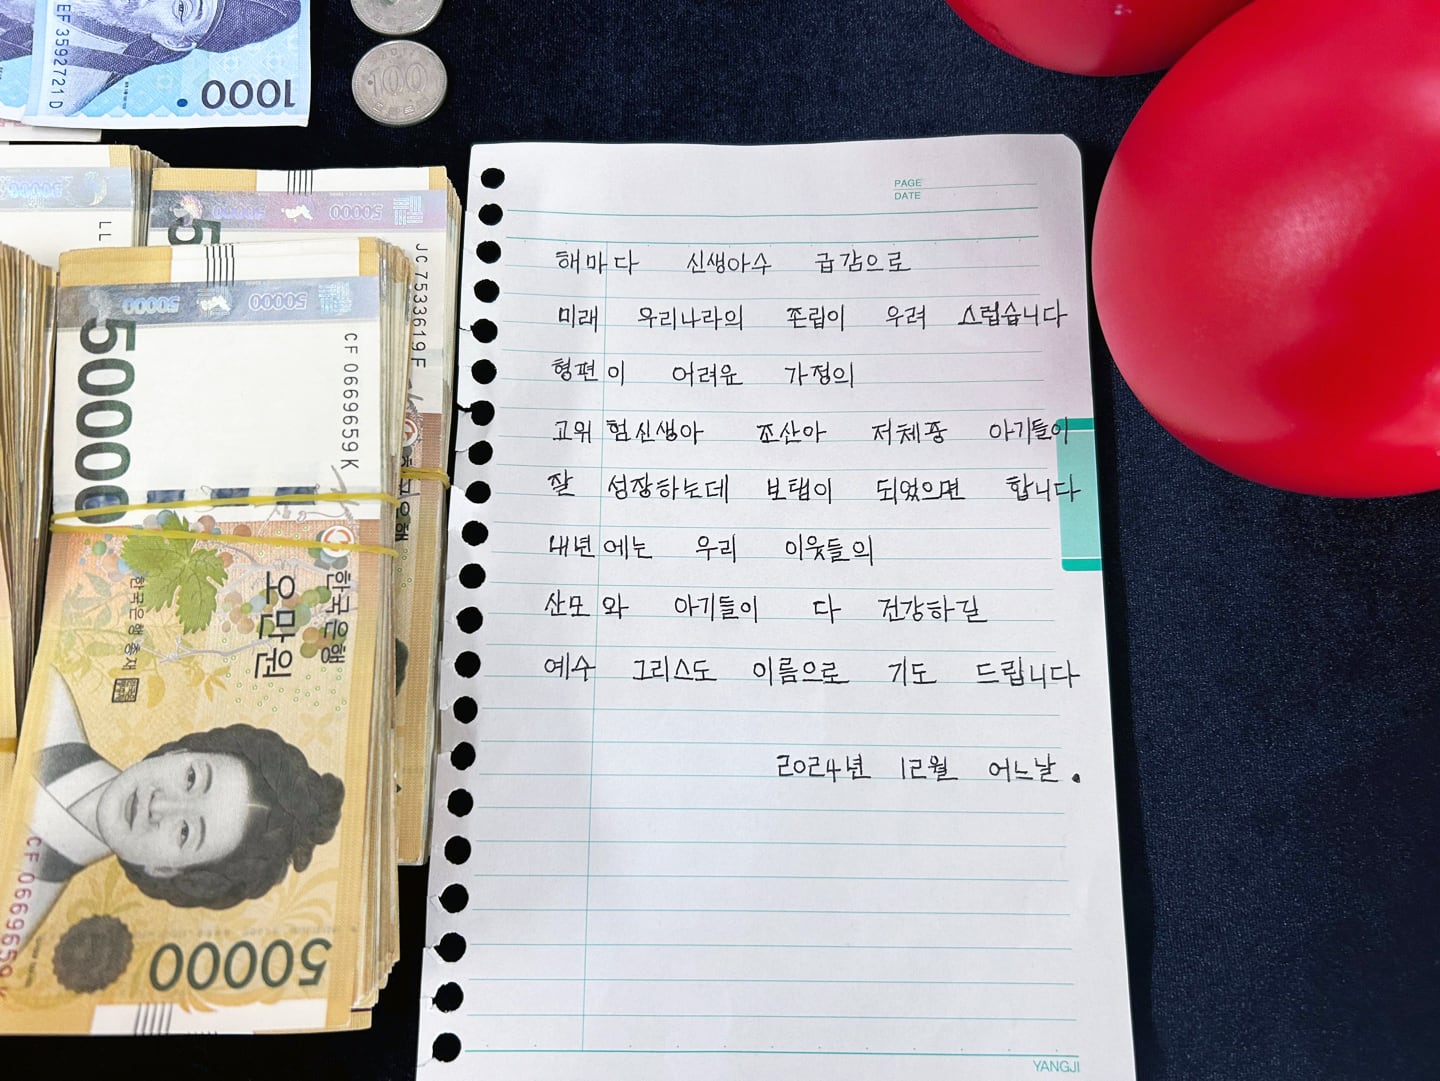 EF3592721D
1000
100
50000
50000
JC7533619F
50000
50000
50000
CF0669659K
한국은행
오만원
한국은행 총재
CF0669659K
50000
PAGE
DATE
해마다 신생아수 급감으로
미래 우리나라의 존립이 우려 스럽습니다
형편이 어려운 가정의
고위험신생아 조산아 저체중 아기들이
잘 성장하는데 보탬이 되었으면 합니다
내년에는 우리 이웃들의
산모와 아기들이 다 건강하길
예수 그리스도 이름으로 기도 드립니다
2024년 12월 어느날.
YANGJI